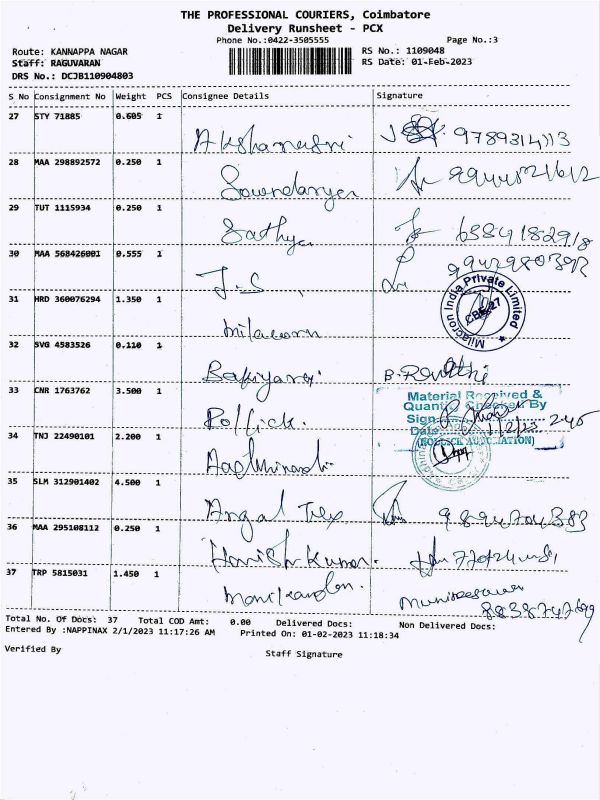 THE PROFESSIONAL COURIERS, Coimbatore
Delivery Runsheet - PCX
Phone No.:0422-3505555 Page No.:3
Route: KANNAPPA NAGAR RS No.: 1109048
Staff: RAGUVARAN RS Date: 01-Feb-2023
DRS No.: DCJB110904803
S No Consignment No Weight PCS Consignee Details Signature
27 STY 71885 0.605 1
9789314113
28 MAA 298892572 0.250 1
Soundarya
29 TUT 1115934 0.250 1
Sathya
30 MAA 568426001 0.555 1
J.S
Milacron India Private Limited
CBE-27
31 HRD 360076294 1.350 1
milacorn
32 SVG 4583526 0.110 1
33 CNR 1763762 3.500 1
Material Received &
Quantity Checked By
Sign
Date 1/2/23
(ROLLICK AUTOMATION)
Rollick.
34 TNJ 22490101 2.200 1
35 SLM 312901402 4.500 1
Angal Tex 9894704383
36 MAA 295108112 0.250 1
Harish Kumar.
37 TRP 5815031 1.450 1
Manikandan.
Total No. Of Docs: 37 Total COD Amt: 0.00 Delivered Docs: Non Delivered Docs:
Entered By :NAPPINAX 2/1/2023 11:17:26 AM Printed On: 01-02-2023 11:18:34
Verified By
Staff Signature